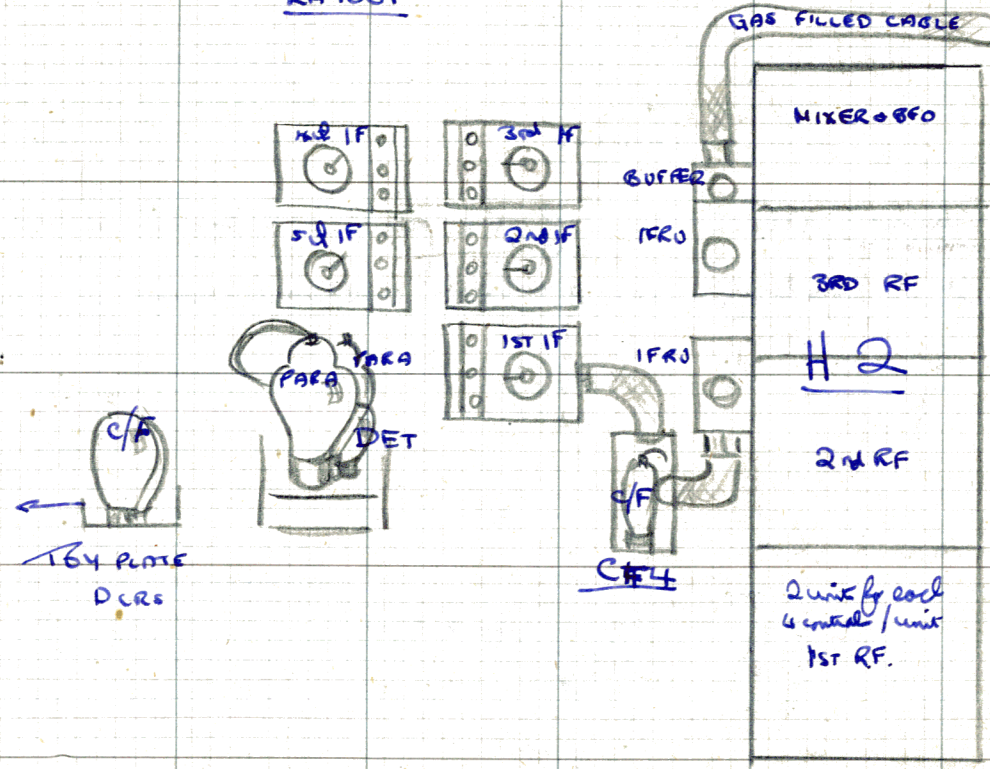 LAYOUT
GAS FILLED CABLE
MIXER & BFO
4th IF
3rd IF
BUFFER
5th IF
2nd IF
IFRU
3RD RF
1ST IF
IFRU
H 2
PARA
PARA
C/F
DET
2nd RF
C/F
TBY PLATE
DCRS
C#4
2 units for each
4 controls / unit
1ST RF.